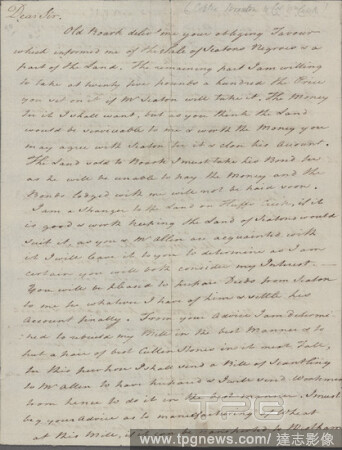 Dear Sir.
Old Roach deliv.d me your obliging Favour
which informed me of the Sale of Seatons Negroes & a
part of the Land. The remaining part I am willing
to take at twenty five pounds a hundred the Price
you set on it if Mr Seaton will take it. The Money
for it I shall want, but as you think the Land
would be serviceable to me & worth the Money you
may agree with Seaton for it & close his Account.
The Land sold to Roach I must take his Bond for
as he will be unable to pay the Money and the
Bonds lodged with me will not be paid soon.
I am a Stranger to the Land on
is good & worth keeping the Land of Seatons would
suit it, as you & Mr Allen are acquainted with
it I will leave it to you to determine as I am
certain you will both consider my Interest
You will be pleased to prepare Deeds from Seaton
to me for whatever I have of him & settle his
Account finally. From your Advice I am determi-
ned to rebuild my Mill in the best Manner & to
put a pair of best Cullen Stones in it next Fall,
for this purpose I shall send a Bill of Scantling
to Mr Allen to have prepared & I will send Workmen
from hence to do it in the best manner. I must
beg your Advice as to manufacturing of Wheat
at this Mill, if it can be transported to
TPG
www.tpgnews.com / 達志影像